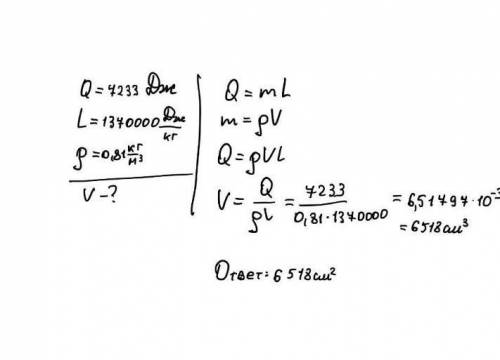 Q = 7233 Дже
L = 1370000 Дже/кг
ρ = 0,81 кг/м3
V - ?
Q = mL
m = ρV
Q = ρVL
V = Q/ρL = 7233/0,81·1370000 = 6,51797·10⁻³
= 6518 см³
Ответ: 6518 см²